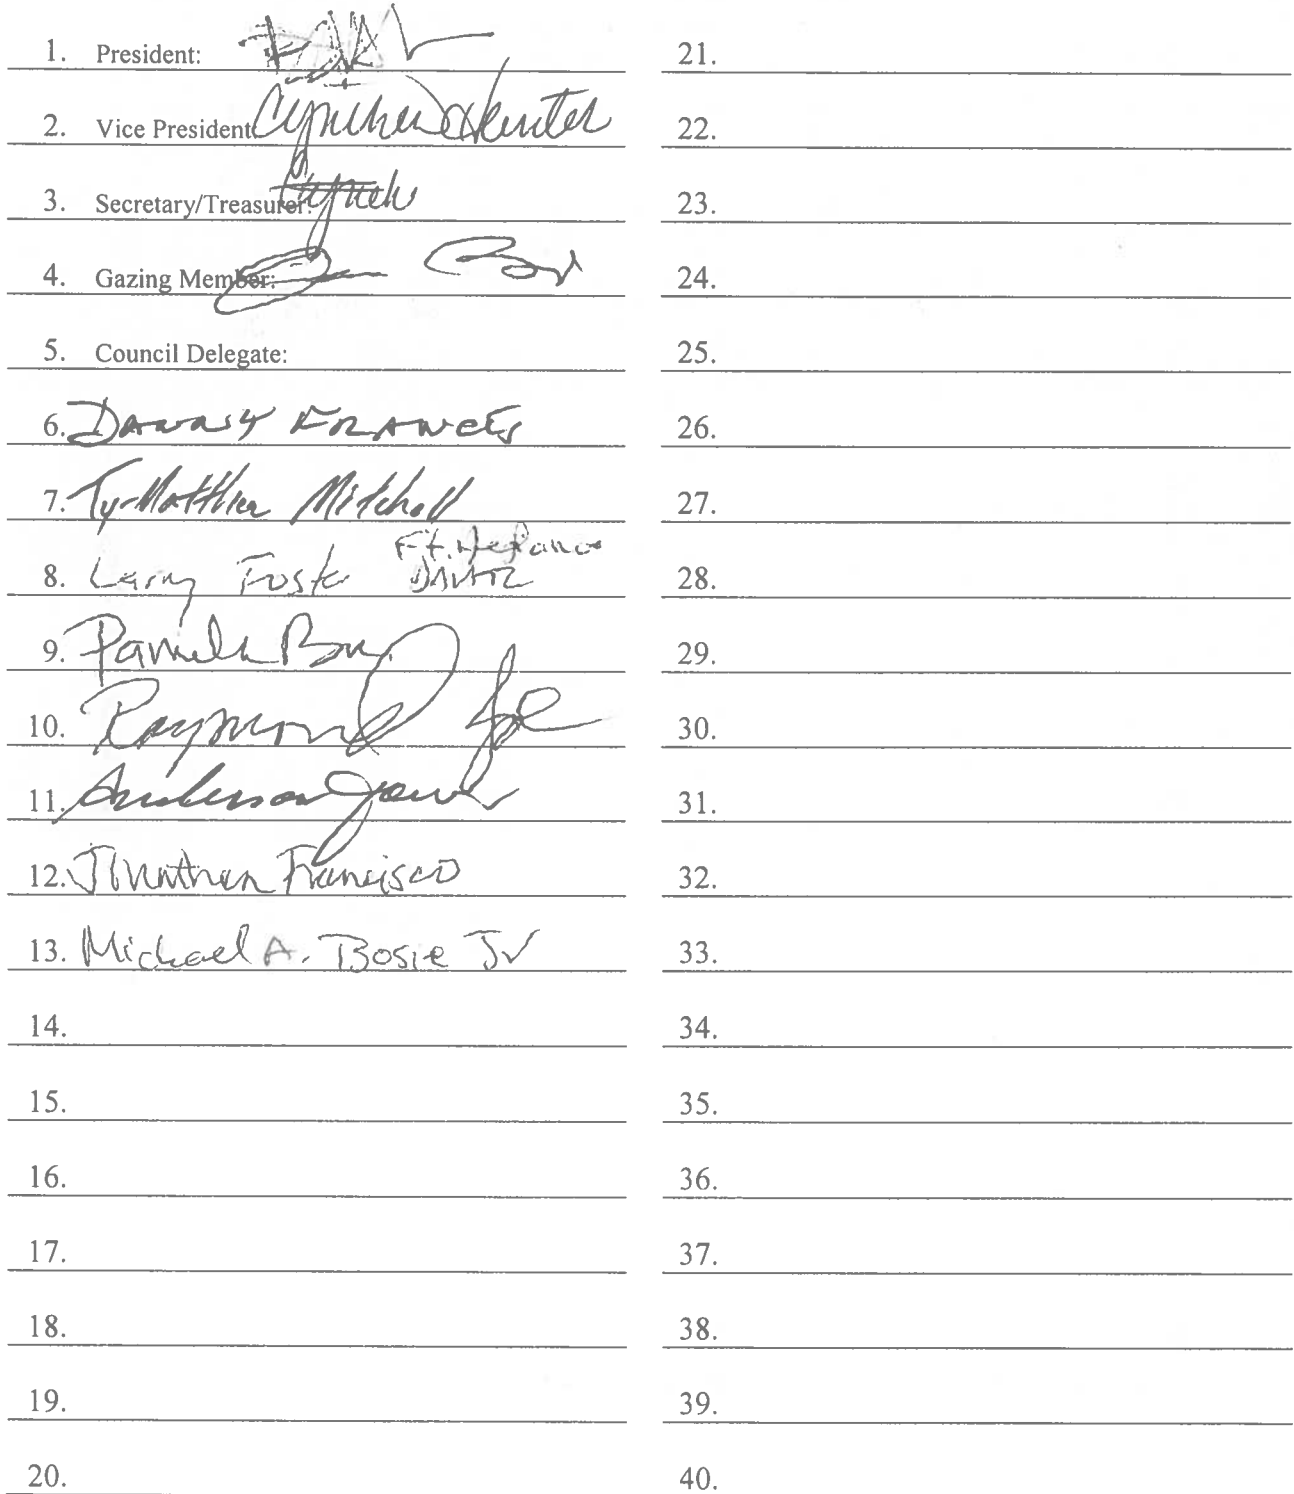 1. President:
2. Vice President: Cynthia Hunter
3. Secretary/Treasurer:
4. Gazing Member:
5. Council Delegate:
6. DANNY FRANCES
7. Ty-Matthew Mitchell
Ft. Defiance
8. Larry Foster
9. Pamela
10. Raymond Joe
11. Anderson
12. Jonathan Francisco
13. Michael A. Bosie Jr
14.
15.
16.
17.
18.
19.
20.
21.
22.
23.
24.
25.
26.
27.
28.
29.
30.
31.
32.
33.
34.
35.
36.
37.
38.
39.
40.